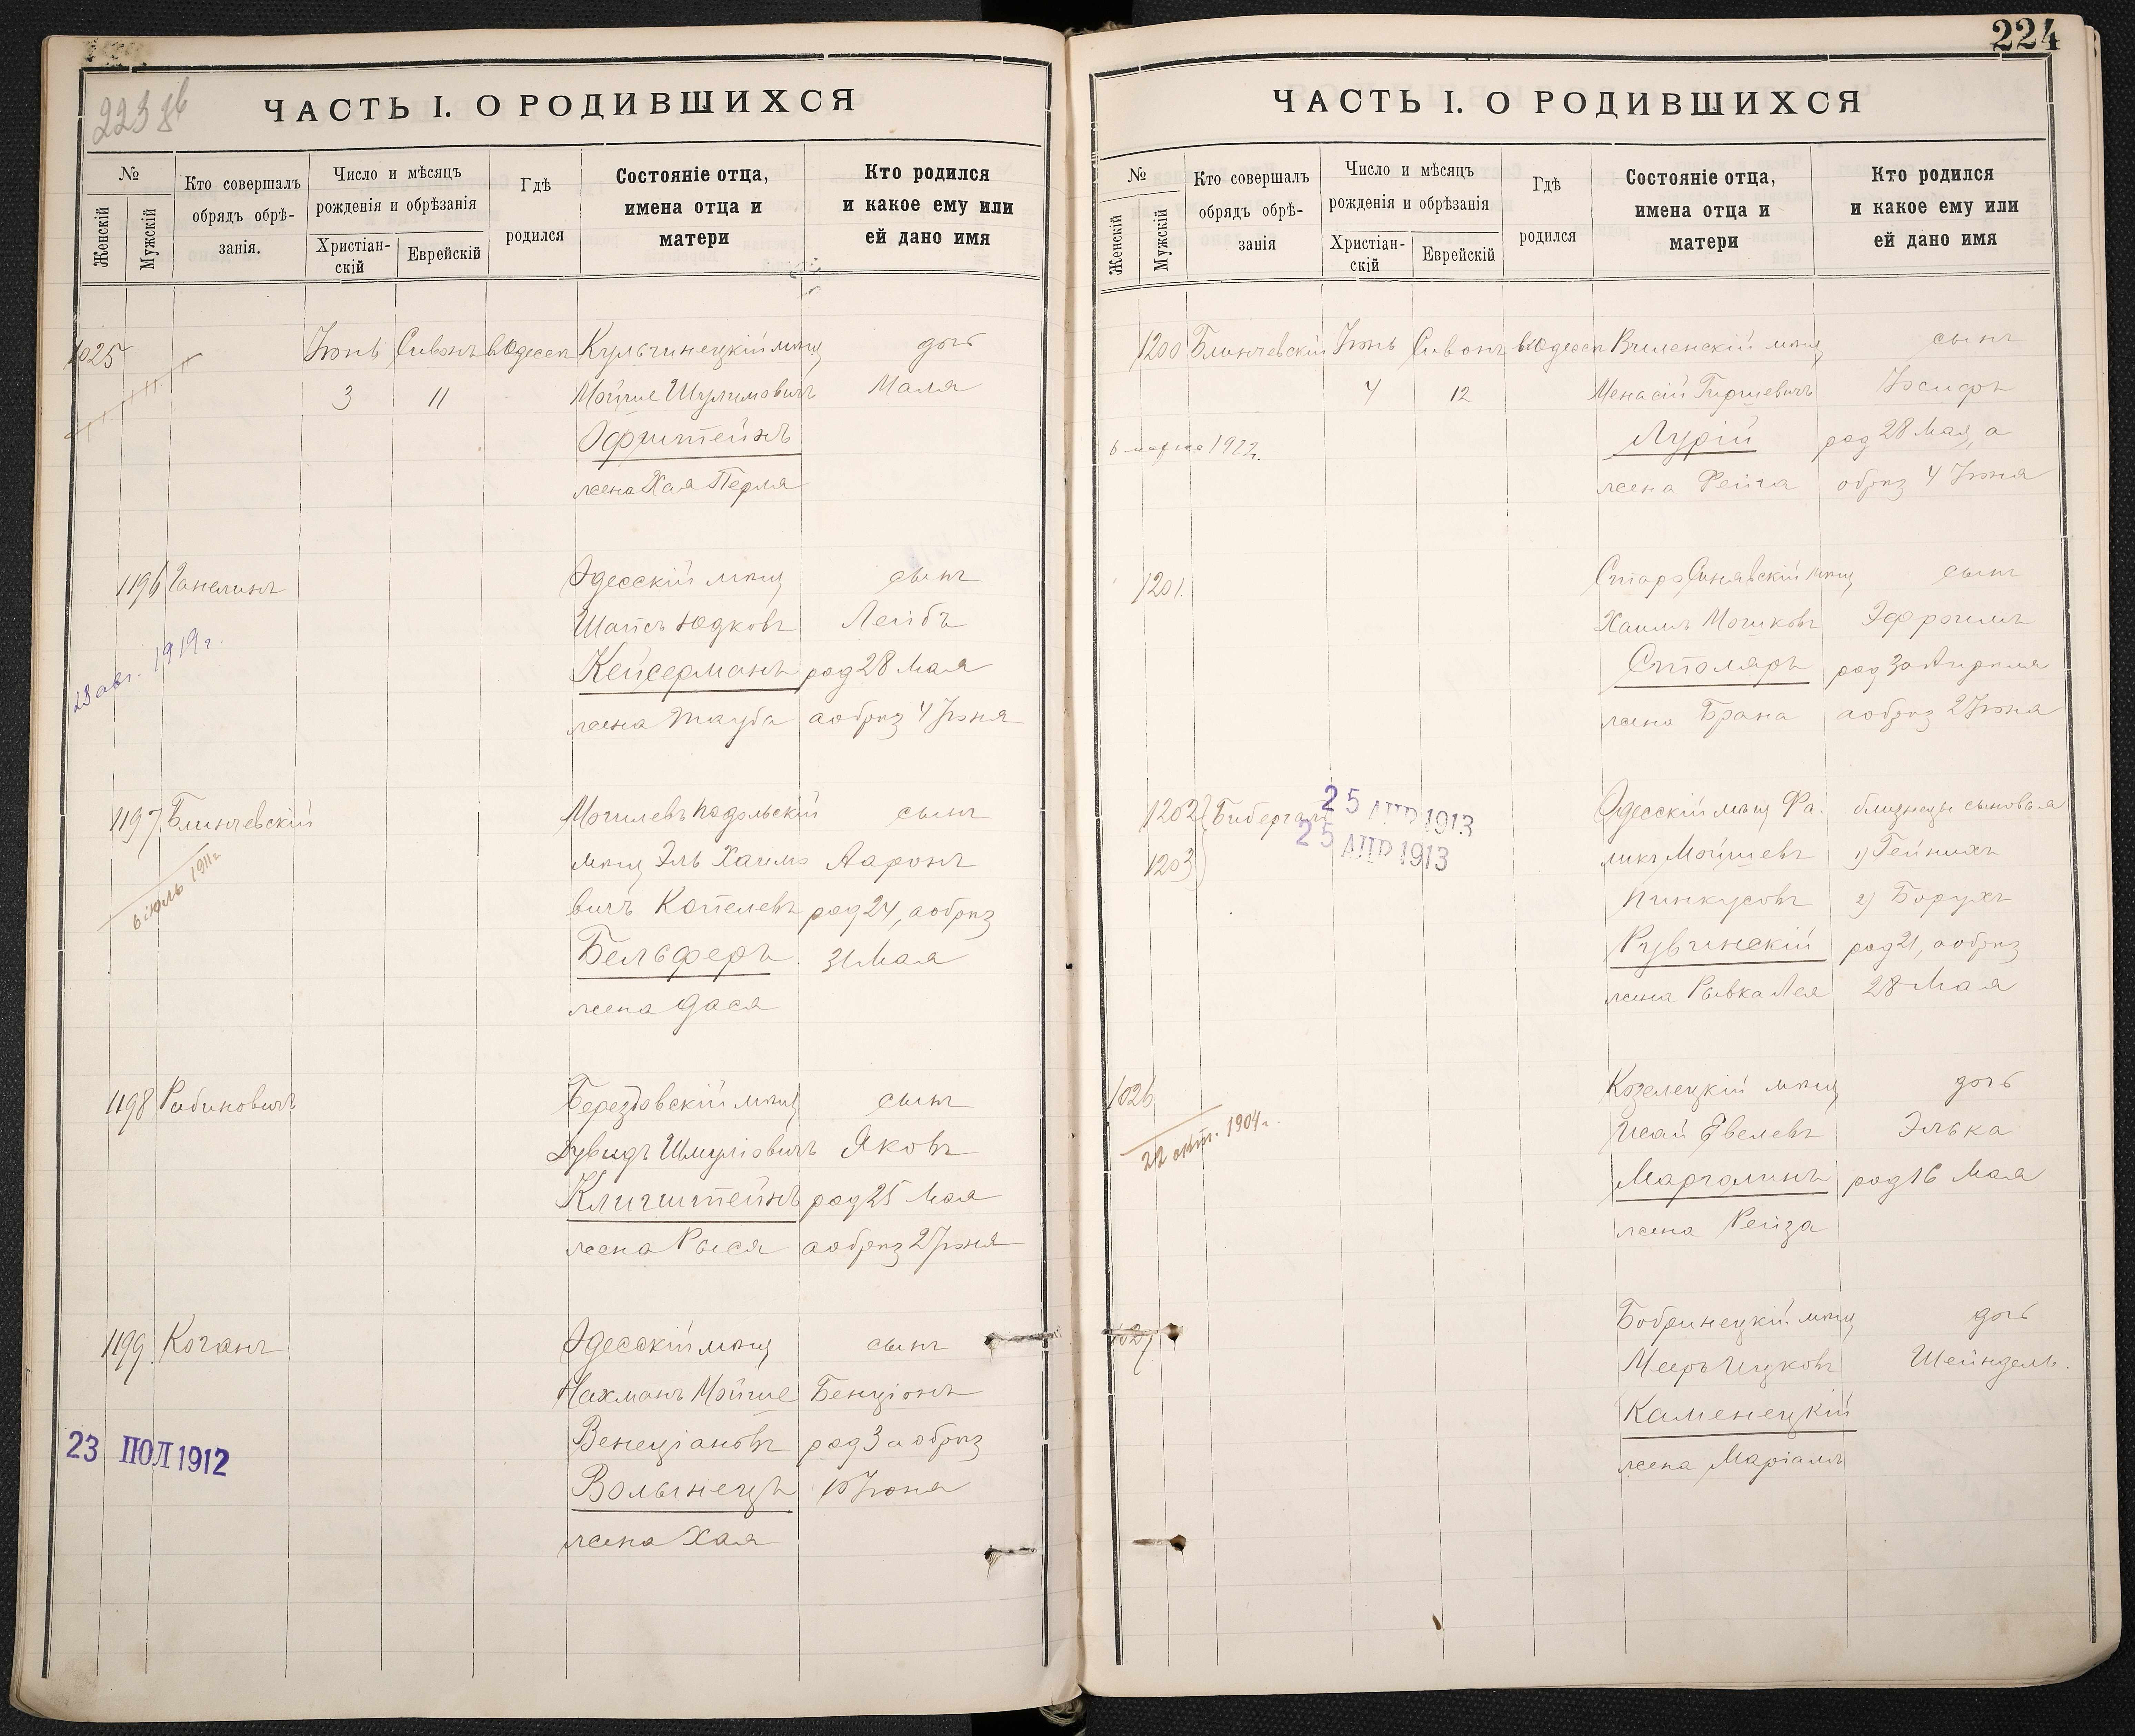 223 об
ЧАСТЬ I. О РОДИВШИХСЯ
№
Женскій
Мужскій
Кто совершалъ
обрядъ обрѣ-
занія.
Число и мѣсяцъ
рожденія и обрѣзанія
Христіан-
скій
Еврейскій
Гдѣ
родился
Состояніе отца,
имена отца и
матери
Кто родился
и какое ему или
ей дано имя
1025 Іюнь Сивонъ въ Одессѣ Кульчинецкій мѣщ дочь
3 11 Мойше Шулимовичъ Маля
Офштейнъ
жена Хая Перля
1196 Ганелинъ Одесскій мѣщ сынъ
Шапсъ Юдковъ Лейбъ
23 авг. 1919 г.
Кейсерманъ род 28 Мая
жена Тауба а обрѣз 4 Іюня
1197 Блинчевскій Могилевъ подольскій сынъ
мѣщ Эль Хаимо Ааронъ
6 іюль 1911 г
вичъ Копелевъ род 24, а обрѣз
Бельферъ 31 Мая
жена Дася
1198 Рабиновичъ Берездовскій мѣщ сынъ
Дувидъ Шмуліовичъ Яковъ
Клигштейнъ род 25 Мая
жена Рыся а обрѣз 2 Іюня
1199 Коганъ Одесскій мѣщ сынъ
Нахманъ Мойше Бенціонъ
23 ІЮЛ 1912
Венеціановъ род 3 а обрѣз
Волынецъ 10 Іюня
жена Хая
224
ЧАСТЬ I. О РОДИВШИХСЯ
№
Женскій
Мужскій
Кто совершалъ
обрядъ обрѣ-
занія
Число и мѣсяцъ
рожденія и обрѣзанія
Христіан-
скій
Еврейскій
Гдѣ
родился
Состояніе отца,
имена отца и
матери
Кто родился
и какое ему или
ей дано имя
1200 Блинчевскій Іюнь Сивонъ въ Одессѣ Виленскій мѣщ сынъ
4 12 Менасій Гиршевичъ Іосифъ
6 марта 1922 г.
Лурій род 28 Мая, а
жена Фейга обрѣз 4 Іюня
1201. Старо Синявскій мѣщ сынъ
Хаимъ Мошковъ Эфроимъ
Столяръ род 30 Апрѣля
жена Брана а обрѣз 2 Іюня
1202 Бибергалъ 25 АПР 1913 Одесскій мѣщ Фа. близнецы сыновья
1203 25 АПР 1913 ликъ Мойшевъ 1) Гейнихъ
Пинкусовъ 2) Борухъ
Рувинскій род 21, а обрѣз
жена Рывка Лея 28 Мая
1026 Козелецкій мѣщ дочь
22 окт. 1904 г.
Исай Евелевъ Элька
Марголинъ род 16 Мая
жена Рейза
1027 Бобринецкій мѣщ дочь
Мееръ Ицковъ Шейндель.
Каменецкій
жена Маріамъ